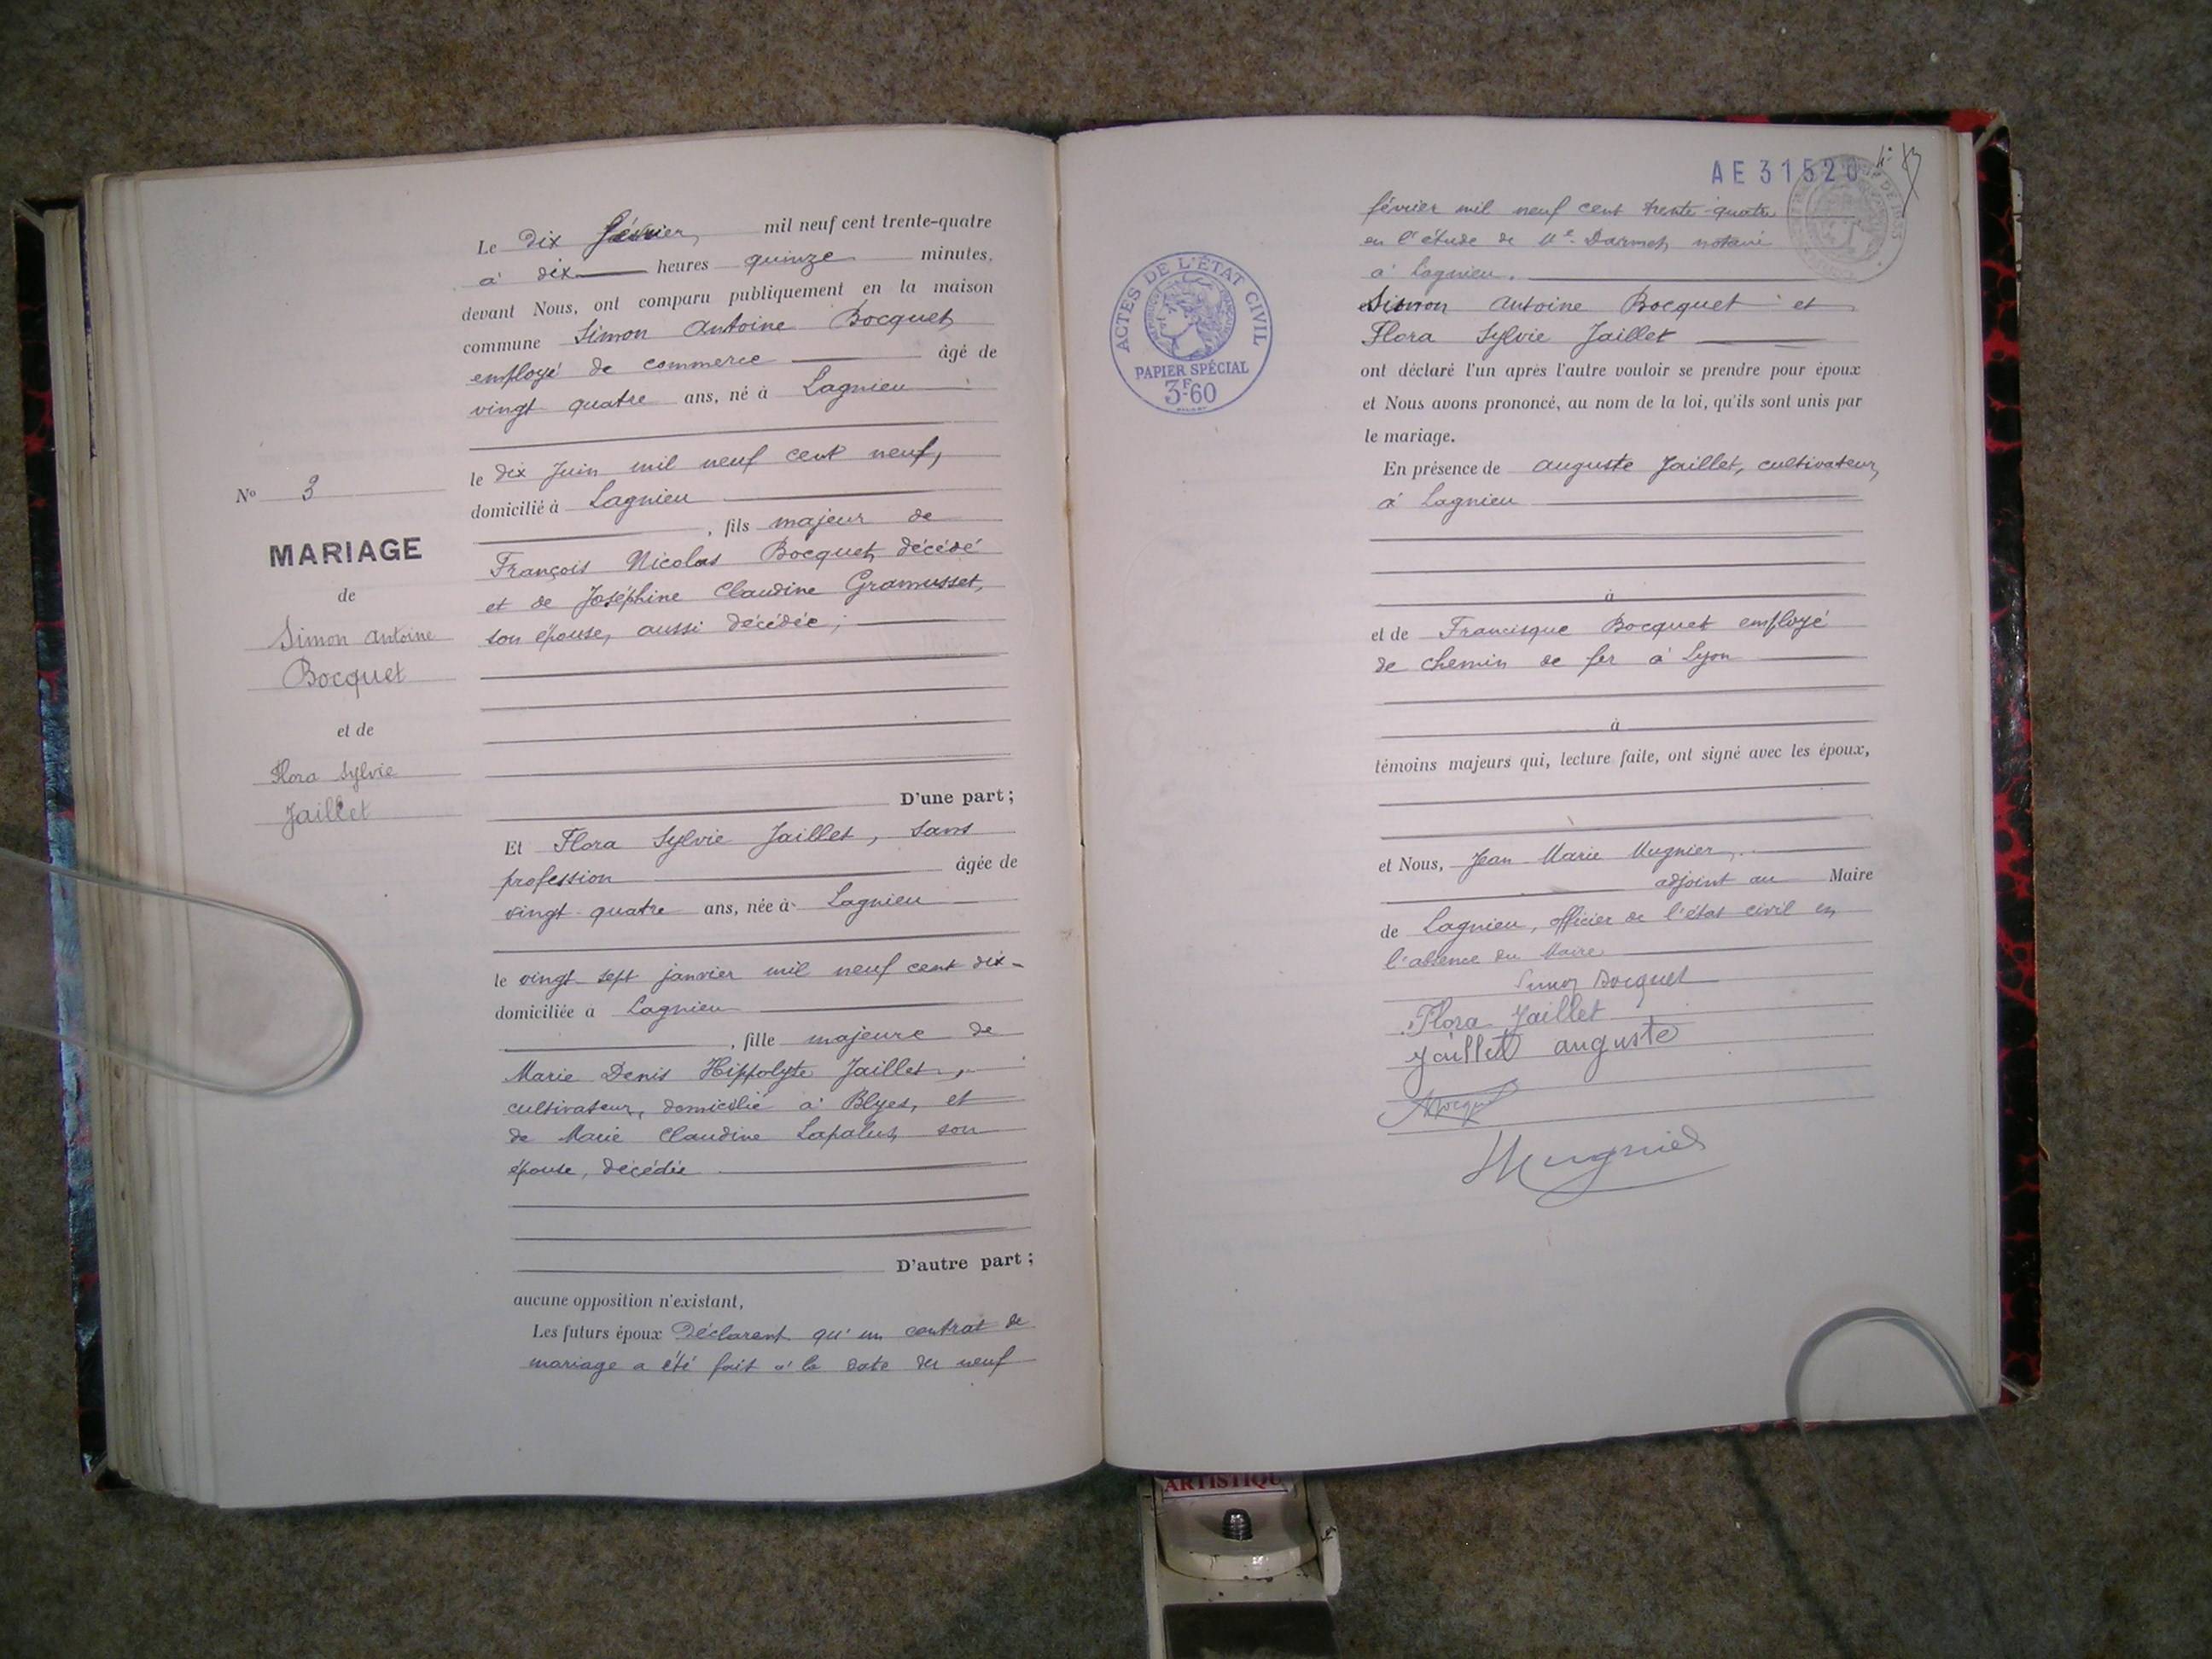 Le dix février, mil neuf cent trente-quatre
à dix heures quinze minutes,
devant Nous, ont comparu publiquement en la maison
commune Simon Antoine Bocquet
employé de commerce âgé de
vingt quatre ans, né à Lagnieu
le dix Juin mil neuf cent neuf,
domicilié à Lagnieu
, fils majeur de
François Nicolas Bocquet, décédé
et de Joséphine Claudine Gramusset,
son épouse, aussi décédée ;
D'une part ;
No 3
MARIAGE
de
Simon Antoine
Bocquet
et de
Flora Sylvie
Jaillet
Et Flora Sylvie Jaillet, sans
profession âgée de
vingt-quatre ans, née à Lagnieu
le vingt-sept janvier mil neuf cent dix-
domiciliée à Lagnieu
, fille majeure de
Marie Denis Hippolyte Jaillet,
cultivateur, domicilié à Blyes, et
de Marie Claudine Lapalus, son
épouse, décédée
D'autre part ;
aucune opposition n'existant,
Les futurs époux déclarent qu'un contrat de
mariage a été fait à la date du neuf
AE 31520
février mil neuf cent trente-quatre
en l'étude de Me Darmet, notaire
à Lagnieu.
Simon Antoine Bocquet et
Flora Sylvie Jaillet
ont déclaré l'un après l'autre vouloir se prendre pour époux
et Nous avons prononcé, au nom de la loi, qu'ils sont unis par
le mariage.
En présence de Auguste Jaillet, cultivateur,
à Lagnieu
à
et de Francisque Bocquet employé
de chemin de fer à Lyon
à
témoins majeurs qui, lecture faite, ont signé avec les époux,
et Nous, Jean-Marie Mugnier,
adjoint au Maire
de Lagnieu, officier de l'état civil en
l'absence du Maire
Simon Bocquet
Flora Jaillet
Jaillet auguste
Bocquet
Mugnier
ACTES DE L'ÉTAT CIVIL
RÉPUBLIQUE FRANÇAISE
PAPIER SPÉCIAL
3F60
ARTISTIQU